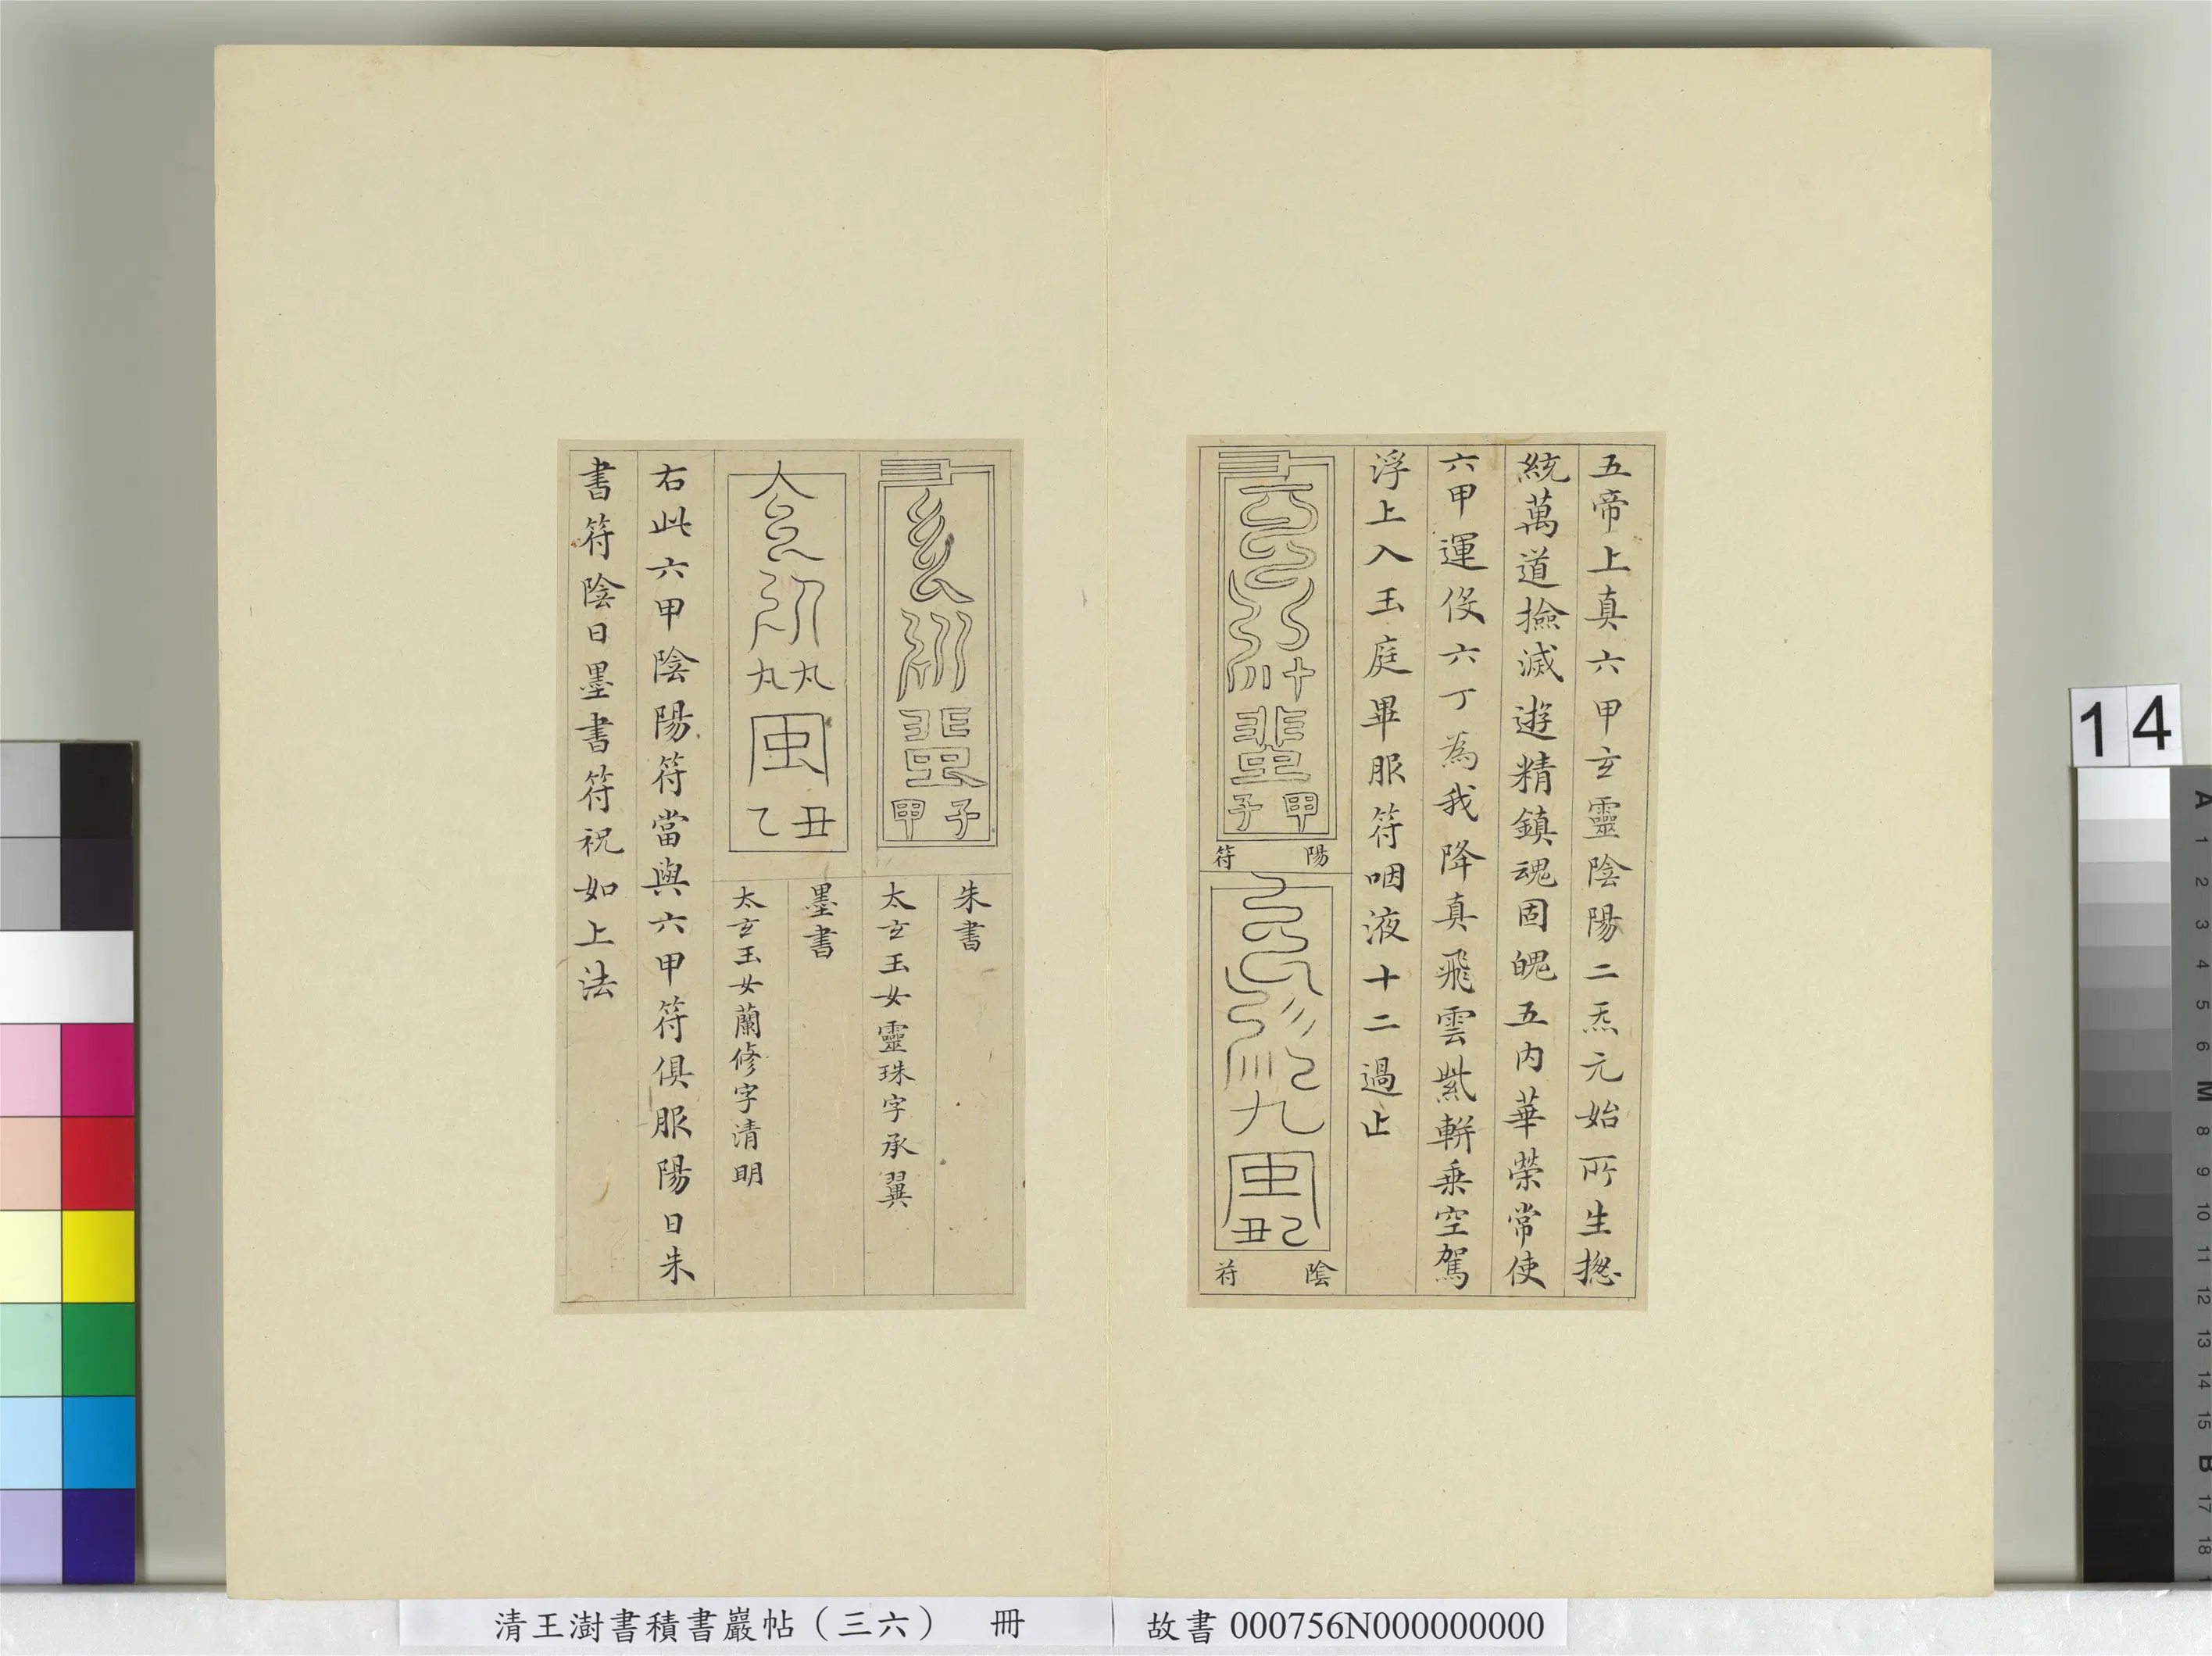 五帝上真六甲玄靈陰陽二炁元始所生揔
統萬道撿滅遊精鎮魂固魄五內華榮常使
六甲運伇六丁為我降真飛雲紫軿乗空駕
浮上入玉庭畢服符咽液十二過止
甲子
陽符
己丑
陰符
子甲
朱書
太玄玉女靈珠字承翼
丑乙
墨書
太玄玉女蘭修字清明
右此六甲陰陽符當與六甲符俱服陽日朱
書符陰日墨書符祝如上法
清王澍書積書巖帖（三六） 冊
故書 000756N000000000
14
A 1 2 3 4 5 6 M 8 9 10 11 12 13 14 15 B 17 18